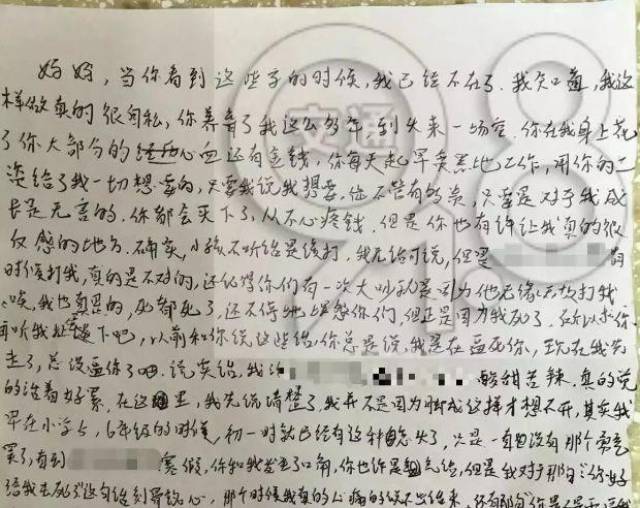 妈妈,当你看到这些字的时候,我已经不在了.我知道,我这
样做真的很自私,你养育了我这么多年到头来一场空.你在我身上花
了你大部分的心血还有金钱,你每天起早贪黑地工作,用你的工
资给了我一切想要的,只要我说我想要,也不管有多贵,只要是对于我成
长是无害的.你都会买下了,从不心疼钱.但是你也有许让我真的很
反感的地方.确实,小孩不听话是该打,我无话可说,但是
时候打我,真的是不对的,还记得你们有一次大吵
我也真的,死都死了,还不停地埋怨你们,但正是因为我死了.所以求你
听我下吧,以前和你说这些话,你总是说,我是在逼死你,现在我先
走了,总没逼你了吧.说实话,我 酸甜苦辣.真的觉
的活着好累.在这里,我先说清楚了,我并不是因为才想不开,其实我
早在小学5,6年级的时候,初一时就已经有这种念头了,只是一直没有那个勇气
罢了,直到 寒假,你和我发生了口角,你也许是气话,但是我对于那句
给我去死"这句话刻骨铭心,那个时候我真的心痛的说不出话来,还有那句
交通
918